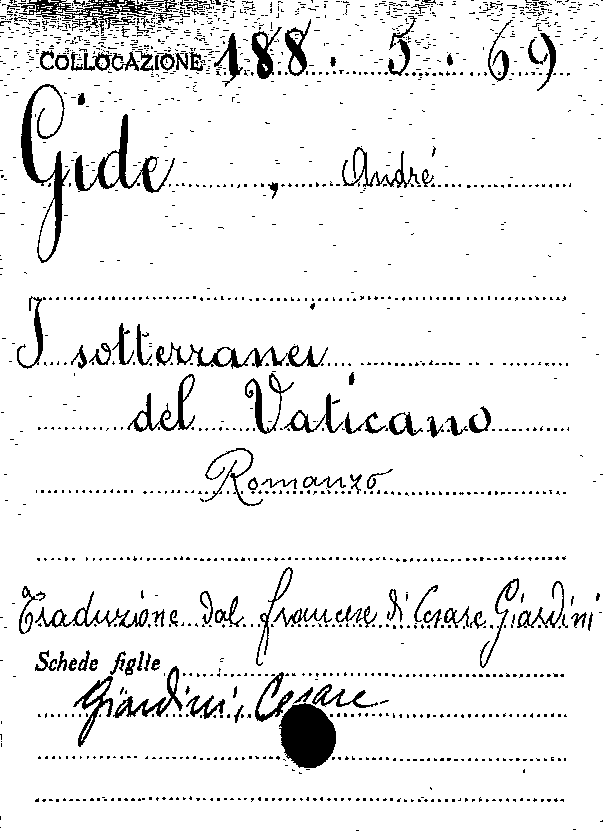 COLLOCAZIONE 188.5.69
Gide, André
I sotterranei
del Vaticano
Romanzo
Traduzione dal francese di Cesare Giardini
Schede figlie
Giardini, Cesare